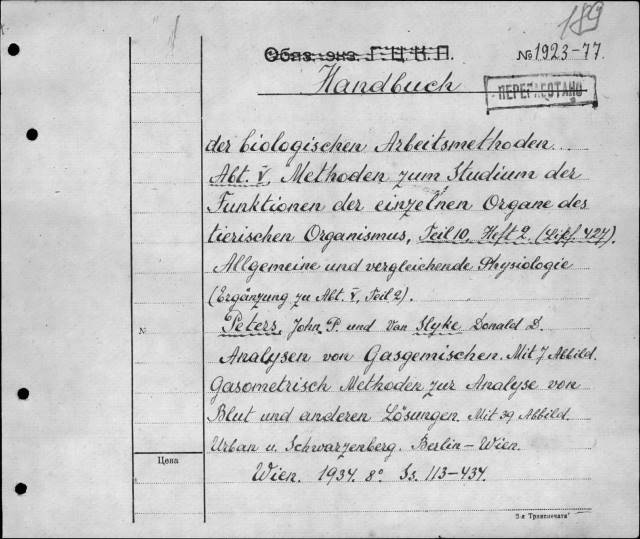 189
Обяз. экз. Г.Ц.К.П.
№ 1923-77.
Handbuch
ПЕРЕРАБОТАНО
der biologischen Arbeitsmethoden..
Abt. V, Methoden zum Studium der
Funktionen der einzelnen Organe des
tierischen Organismus, Teil 10, Heft 2. (Lief. 427).
Allgemeine und vergleichende Physiologie
(Ergänzung zu Abt. V, Teil 2).
№ Peters, John P. und Van Slyke Donald D.
Analysen von Gasgemischen. Mit 7 Abbild.
Gasometrisch Methoden zur Analyse von
Blut und anderen Lösungen. Mit 39 Abbild.
Urban u. Schwarzenberg. Berlin–Wien.
Цена
Wien. 1934. 8° Ss. 113–434.
3-я Транспечать